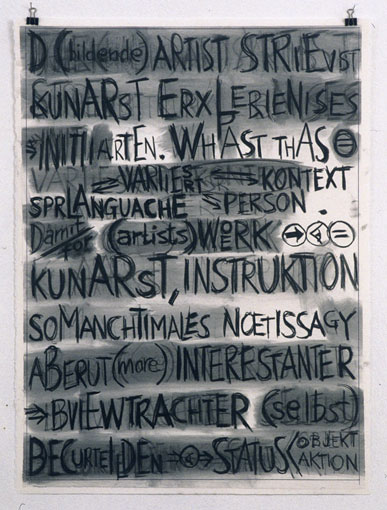 D (bildende) ARTIST STRIEVBT
KUNARST ERXLEBIENISES
INITIIARTEN. WHAST THAS
VARLIESERT KONTEXT
SPRLANGUACHE PERSON.
Damit for (artists) WOERK
KUNARST, INSTRUKTION
SOMANCHTIMALES NOETISSAGY
ABERUT (more) INTERESTANTER
BVIEWTRACHTER (selbst)
STATUS OBJEKT
AKTION